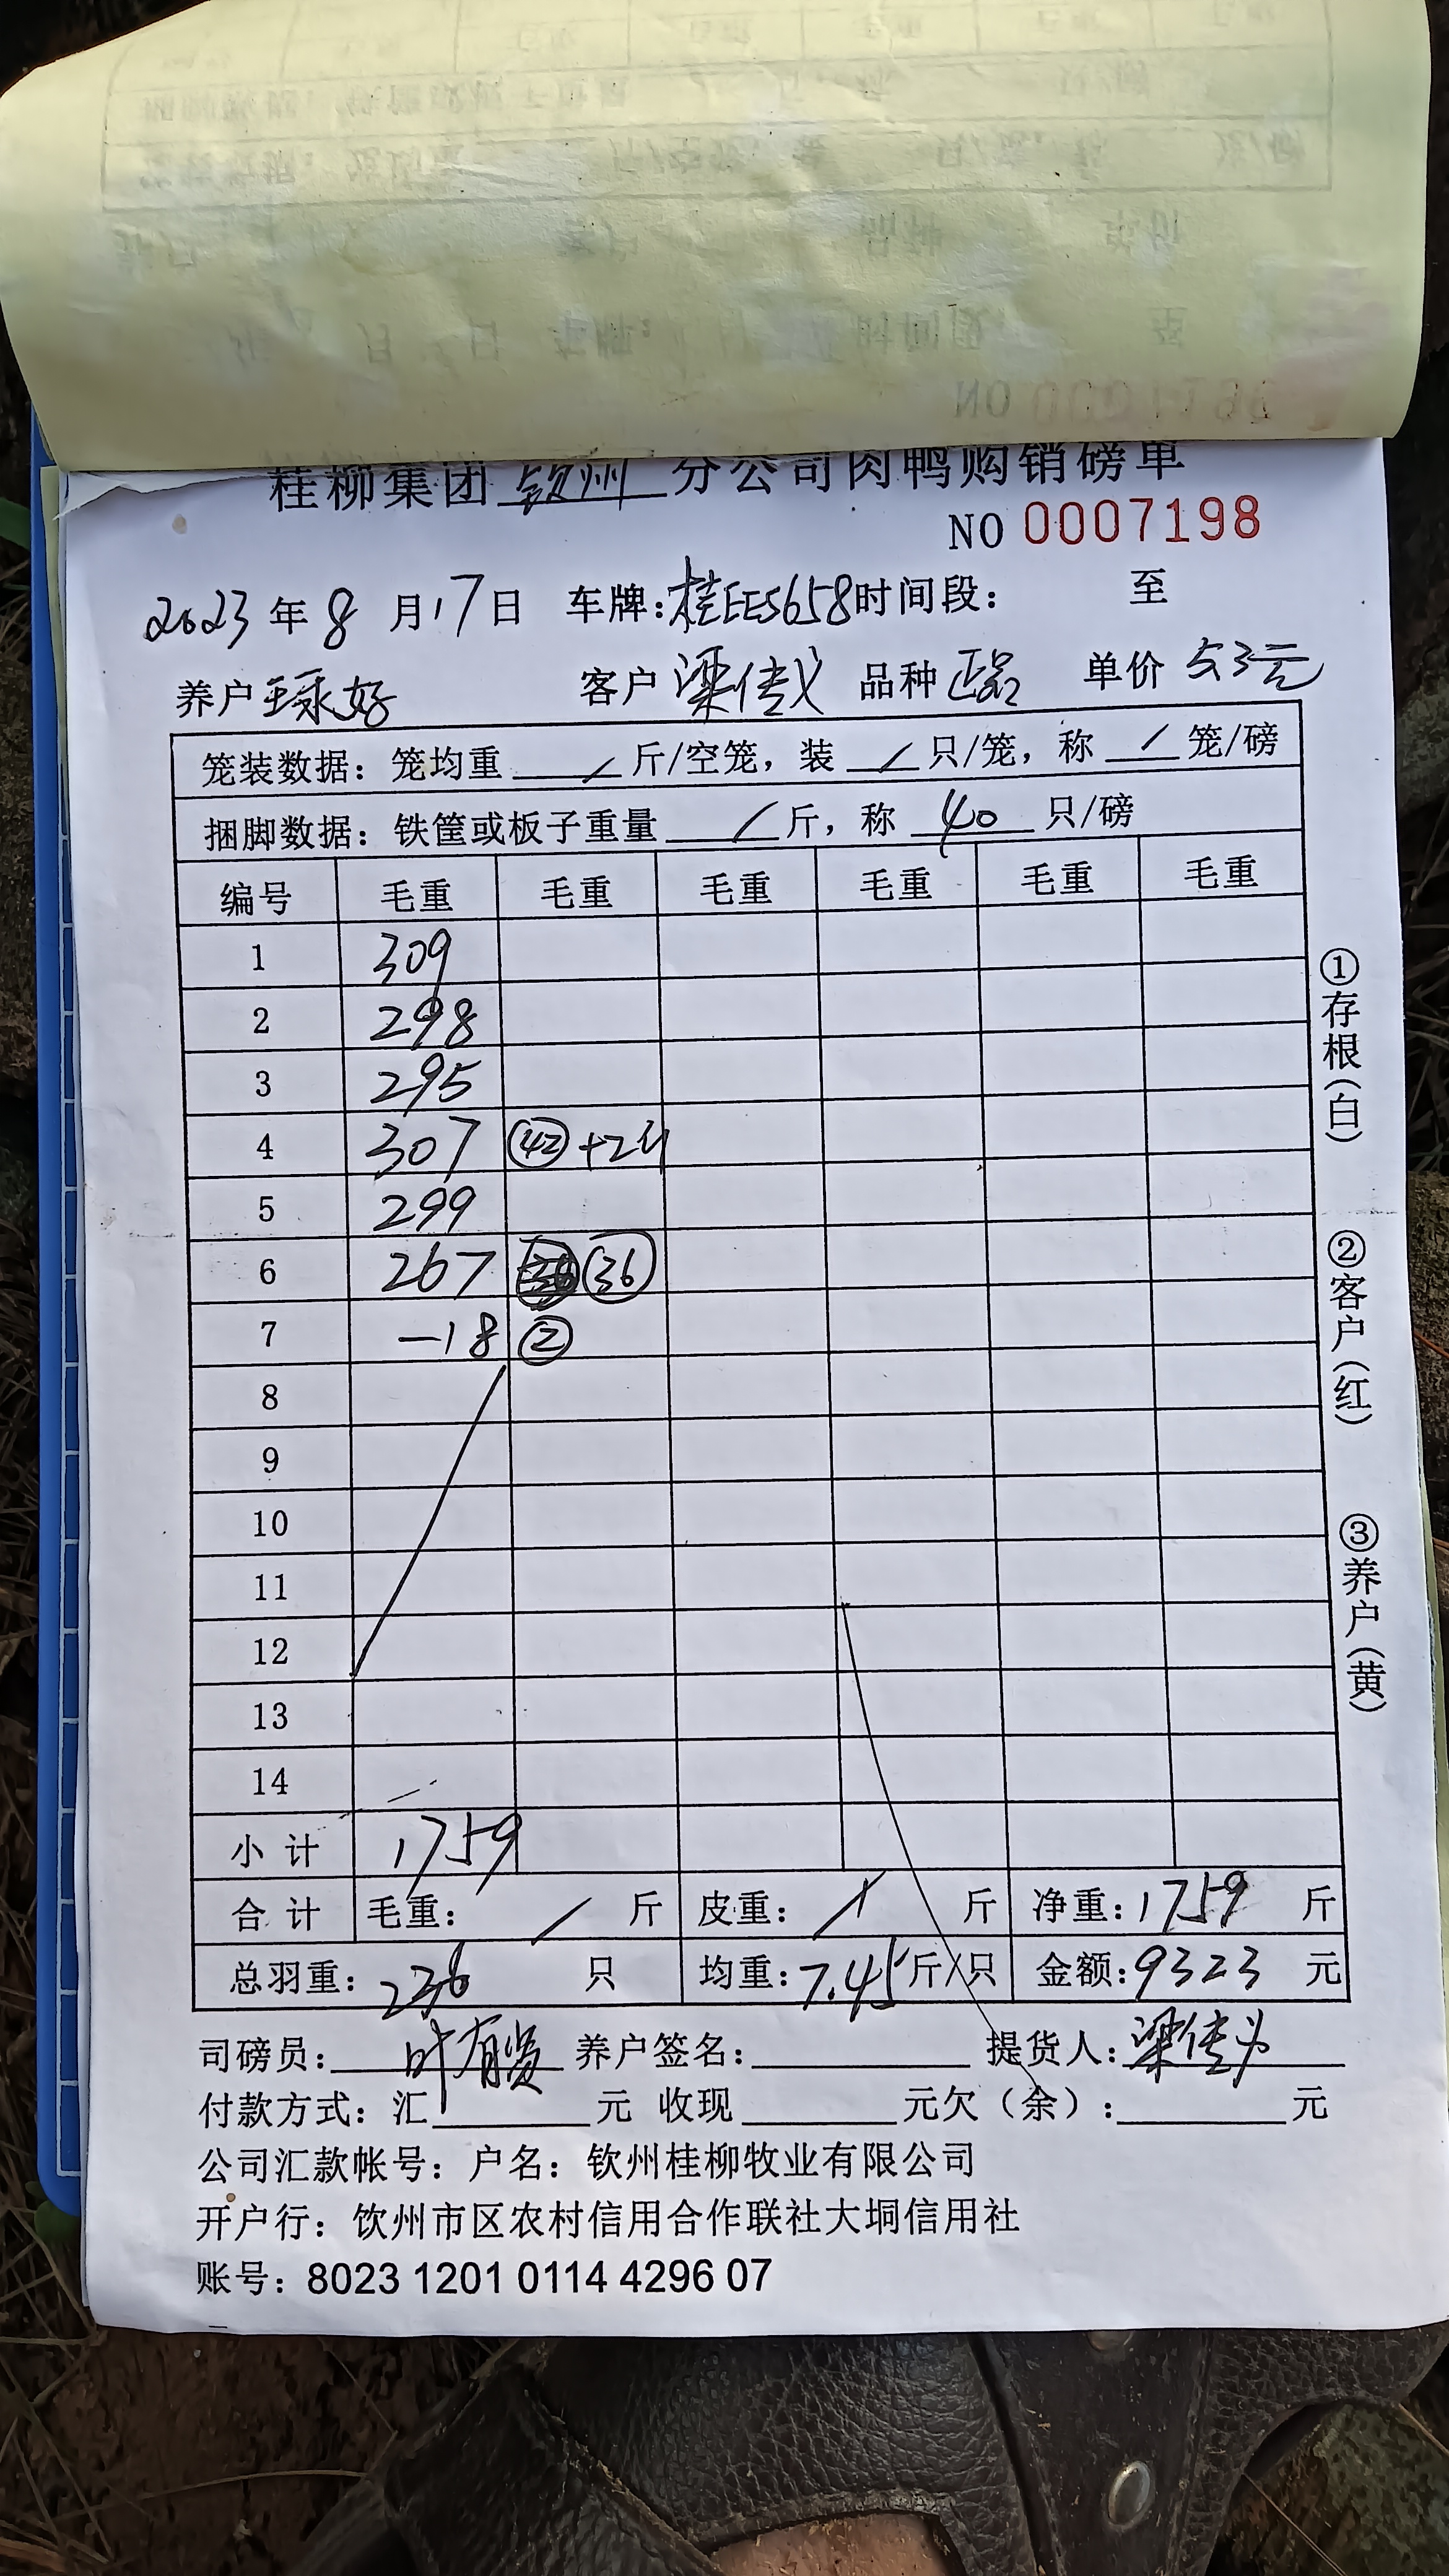 桂柳集团钦州分公司肉鸭购销磅单
NO 0007198
2023年8月17日 车牌:桂EES658时间段: 至
养户 好 客户 梁传义 品种 正品 单价 5.3元
笼装数据: 笼均重 / 斤/空笼, 装 / 只/笼, 称 / 笼/磅
捆脚数据: 铁筐或板子重量 / 斤, 称 40 只/磅
编号 毛重 毛重 毛重 毛重 毛重 毛重
1 309
2 298
3 295
4 307 (42) +2只
5 299
6 267 (36)
7 -18 ②
8
9
10
11
12
13
14
小计 1759
合计 毛重: / 斤 皮重: / 斤 净重: 1759 斤
总羽重: 236 只 均重: 7.45斤/只 金额: 9323 元
司磅员: 叶有贵 养户签名: 提货人: 梁传义
付款方式: 汇 元 收现 元欠(余): 元
公司汇款帐号: 户名: 钦州桂柳牧业有限公司
开户行: 钦州市区农村信用合作联社大垌信用社
账号: 8023 1201 0114 4296 07
①存根(白)
②客户(红)
③养户(黄)